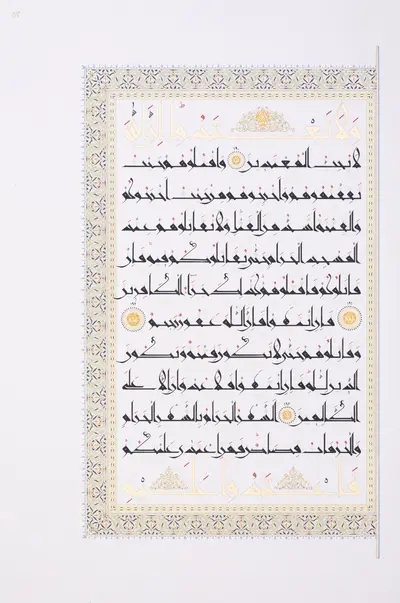 ولا تعتدوا إن الله
لا يحب المعتدين واقتلوهم حيث
ثقفتموهم وأخرجوهم من حيث أخرجوكم
والفتنة أشد من القتل ولا تقاتلوهم عند
المسجد الحرام حتى يقاتلوكم فيه فإن
قاتلوكم فاقتلوهم كذلك جزاء الكافرين
فإن انتهوا فإن الله غفور رحيم
وقاتلوهم حتى لا تكون فتنة ويكون
الدين لله فإن انتهوا فلا عدوان إلا على
الظالمين الشهر الحرام بالشهر الحرام
والحرمات قصاص فمن اعتدى عليكم
فاعتدوا عليه